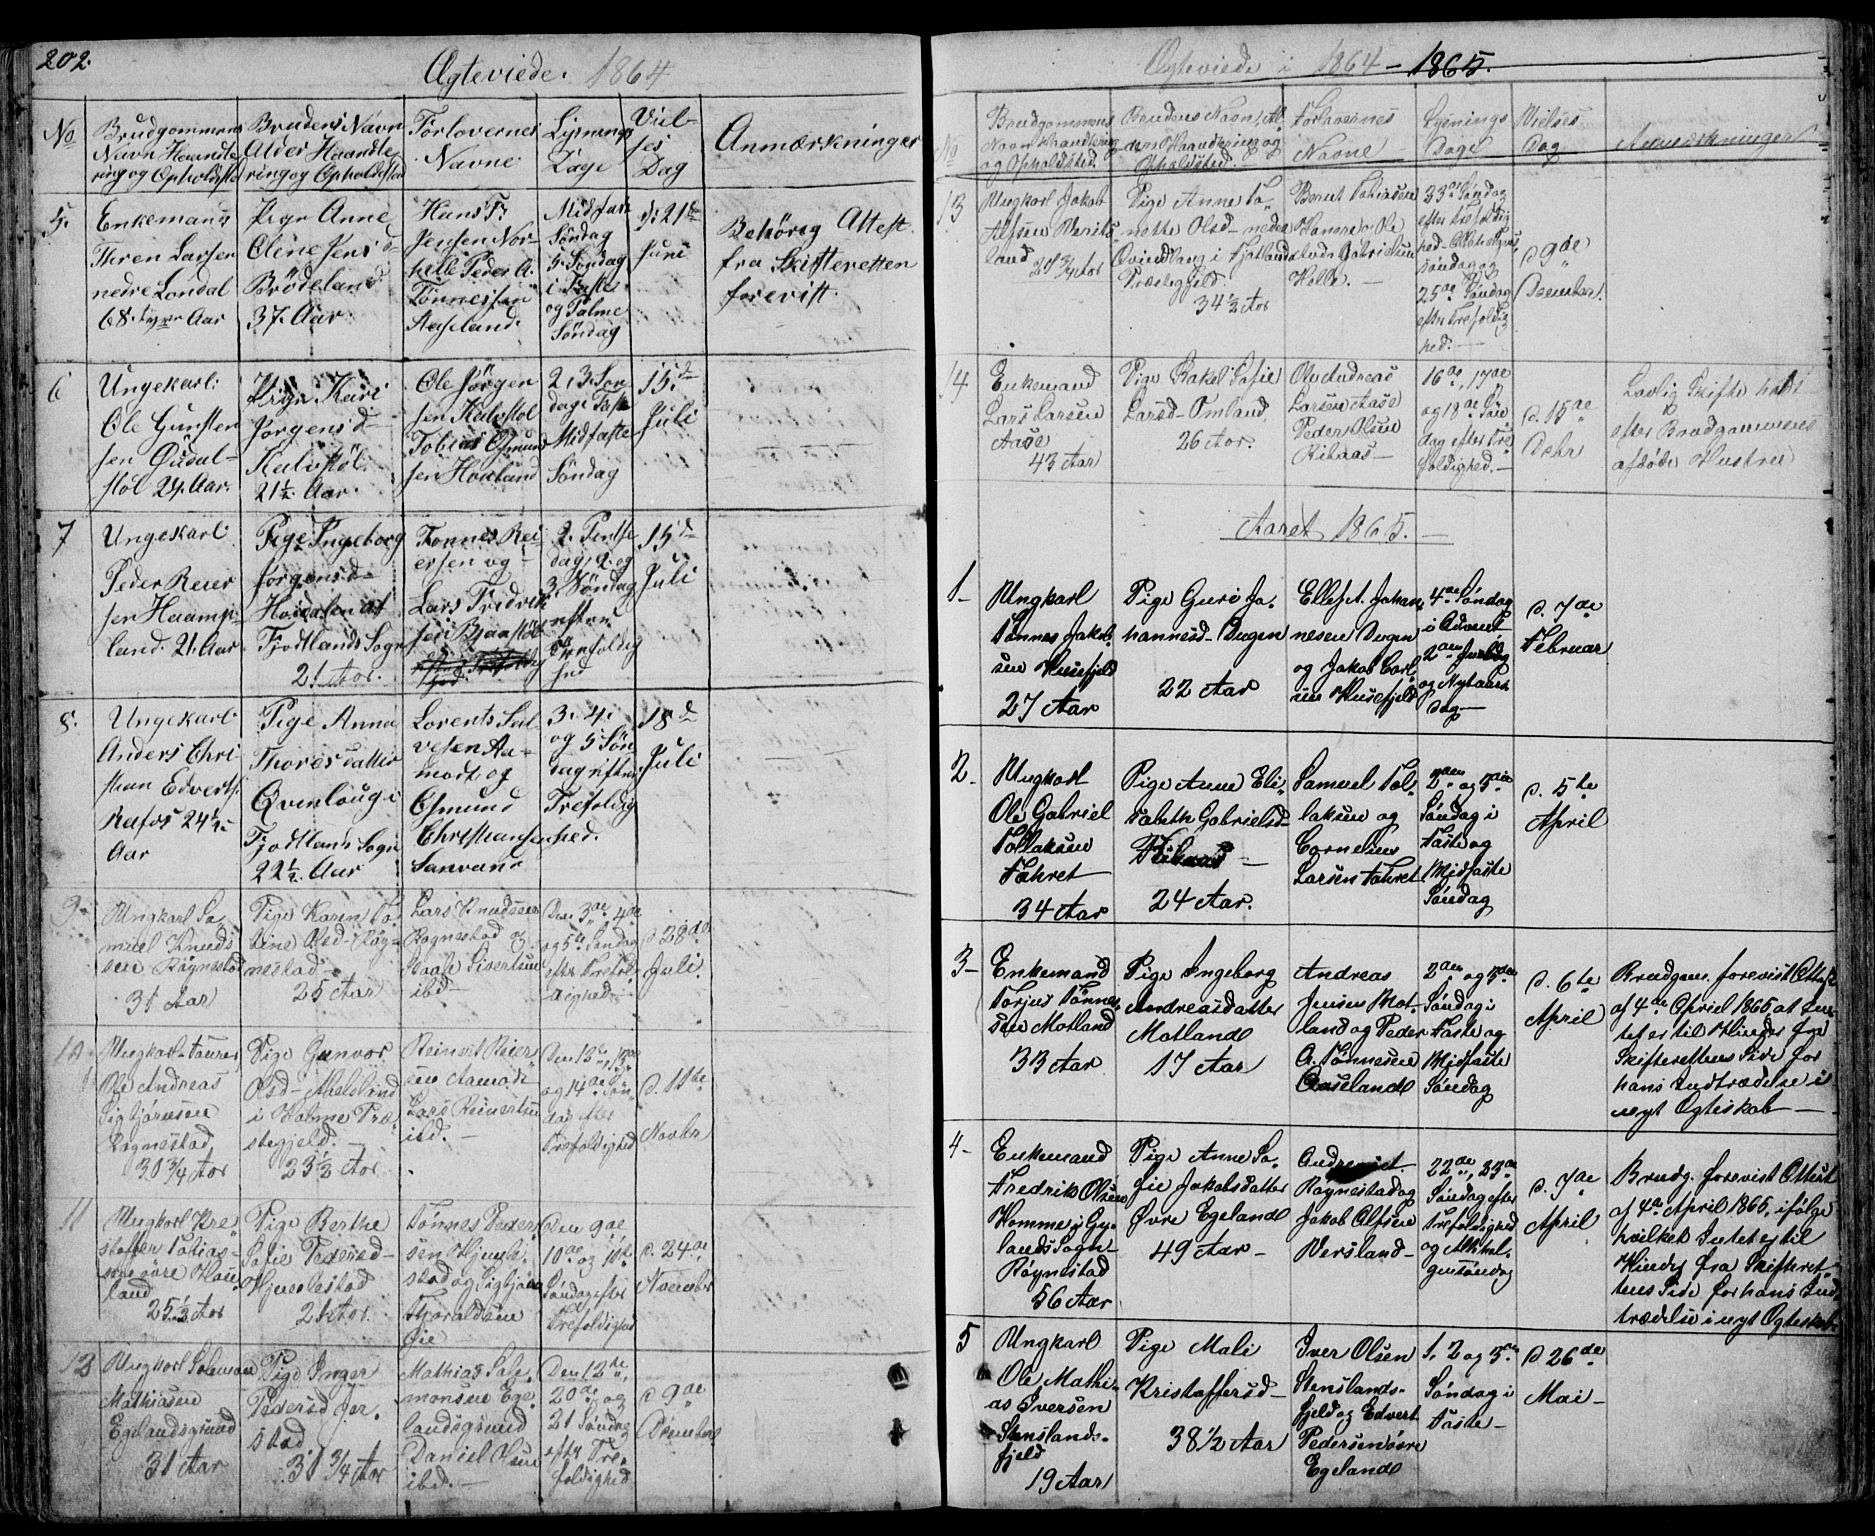 202.
Ægteviede. 1864
No
Brudgommens
Navn Haandte
ring og Opholdsste
Brudens Navn
Alder Haandte
ring og Opholdsted
Forlovernes
Navne.
Lysnings
Dage
Viel-
ses
Dag
Anmærkninger
5.
Enkemand
Thren Larsen
nedre Londal
68. Aar
Pige Anne
Oline Jens d-
Brödeland
37. Aar.
Hans T.
Jensen
Peder A.
Tönnessen
Aaseland.
Midfaste
Söndag
5. Söndag
i Faste
og Palme
Söndag
d: 21de
Juni
Behörig Attest
fra Skifteretten
forevist.
6
Ungekarl.
Ole Gunsten
sen
stöl 24. Aar.
Pige Kari
Jörgens d-
Kalvstöl.
21½ Aar.
Ole Jörgen
sen Kalvstöl
Tobias Osmund
sen Hovland
2, 3. Sön
dag i Faste
Midfaste
Söndag
15.de
Juli
7
Ungekarl.
Peder Reier
sen Haamp-
land. 21. Aar
Pige Ingeborg
Jörgens d-
af
Fjotlands Sogn
21 Aar.
Tönnes Rei-
ersen og -
Lars Fredrik
sen
2. Pintse
dag, 2. og
3. Söndag
efter
Trefoldig
hed
15de
Juli
8.
Ungekarl.
Anders Chri
stian Edverts.
Rafos 24½
Aar
Pige Anna
Thoresdatter
Qvenlaug i
Fjotlands Sogn
22½. Aar
Lorents Sal
vesen Aa-
modt og
Osmund
Christiansen
Sanvand
3. 4.
og 5 Sön
dag efter
Trefoldig
hed.
18d
Juli
9.
Ungkarl Sa
muel Knuds
sen Röynestad
31 Aar
Pige Karen To
bine Olsd- Röy-
nestad -
25 Aar
Lars Knudsen
Röynestad og
Sivertsen
ibd-
Den 3de, 4de
og 5te Söndag
efter Trefol
dighed.
d. 28de
Juli.
10.
Ungkarl
Ole Andreas
Sigbjörnsen
Rögnestad
30 3/4 Aar
Pige Gunvor
Olsd- Mæland
i Holme Præ
stegjeld.
23½ Aar.
Reinert Reier
sen Aamodt
Lars Reinertsen
ibd.-
Den 12te, 13de
og 14de Sön
dag efter
Trefoldighed
d. 11te
Novbr
11
Ungkarl Kri
stoffer Tobias-
sen övre
land
25½ Aar
Pige Berthe
Sofie Pedersd-
Hjemlestad
21 Aar.
Tönnes Peder
sen Hjemle
stad og Sigbjörn
Thoraldsen
Öie
Den 9de
10de og 11te
Söndag efter
Trefoldighed
d. 24de
November
12
Ungkarl Salomon
Mathiasen
Egelandsgrund
31 Aar
Pige Inger
Pedersd Jer.
stad
31 3/4 Aar
Mathias Salo-
monsen Ege
landsgrund
Daniel Olsen
ibd.-
Den 12te,
20de og
21 Söndag
efter Tre
foldighed
d 9de
December
Ægteviede i 1864-1865.
No
Brudgommens
Navn Haandtering
og Opholdssted.
Brudens Navn, Al
der Haandtering og
Opholdssted.
Forlovernes
Navne
Lysnings
Dage
Vielses
Dag
Anmærkninger
13
Ungkarl Jakob
Alfsen Versts
land 28 3/4 Aar
Pige Anne To
nette Olsd- nedre
Qvindlaug i Fjotland
Præstegjeld.
34½ Aar
Berent Tobiassen
Gabrielsen
Holle.-
23de Söndag
efter Trefoldig
hed-
söndag og
25de Söndag
efter Trefoldig
hed.-
d 9de
December.
14
Enkemand
Lars Larsen
Aase
43 Aar
Pige Rakel Sofie
Larsd- Omland
26 Aar.
Ole Andreas
Larsen Aase
Peder Olsen
Ribaas-
16de, 17de
og 18de Sön
dag efter Tre
foldighed.-
d. 15de
Debr
Lovlig Skifte holdt
efter Brudgommens
afdöde Hustru
Aaret 1865.-
1-
Ungkarl
Tönnes Jakob
sen Husefjeld
27 Aar
Pige Guri Jo.
hannesd- Dugen
22 Aar
Ellef A. Johan
nesen Dugen
og Jakob Carl
sen Husefjeld
4de Söndag
i Advent
2den Juledag
og Nytaars
dag-
d. 7de
Februar
2-
Ungkarl
Ole Gabriel
Tollaksen
Föhret
34 Aar
Pige Anne Eli-
sabeth Gabrielsd-
Ribaas -
24 Aar.
Samuel Tol-
laksen og
Cornelius
Larsen Föhret
2den og 3die
Söndag i
Faste og
Midfaste
Söndag
d. 5te
April
3-
Enkemand
Torjus Tönne
sen Motland
33 Aar
Pige Ingeborg
Andreasdatter
Motland
17 Aar
Andreas
Jensen Mot-
land og Peder
A. Tönnesen
Aaseland
2den og 3die
Söndag i
Faste og
Midfaste
Söndag
d. 6te
April
Brudgm. forevist Attest
af 4de April 1865 at In-
tet er til Hinder fra
Skifterettens Side for
hans Indtrædelse i
nyt Ægteskab -
4-
Enkemand
Fredrik Olsen
Homme i Gy-
lands Sogn-
Röynestad
56 Aar
Pige Anne So-
fie Jakobsdatter
Övre Egeland
49 Aar -
Röynestad og
Jakob Alfsen
Versland-
22de, 23de
Söndag efter
Trefoldighed
og Allehel-
gensöndag
d. 7de
April
Brudg. forevist Attest
af 4de April 1865, ifölge
hvilket Intet er til
Hinder fra Skifteret-
tens Side for hans Ind
trædelse i nyt Ægteskab.
5
Ungkarl
Ole Mathi-
as Iversen
Stenslands-
fjeld
19 Aar
Pige Mali
Kristoffersd-
38½ Aar
Iver Olsen
Stenslands-
fjeld og Edvert
Pedersen övre
Egeland
1, 2 og 3die
Söndag i
Faste-
d 26de
Mai-